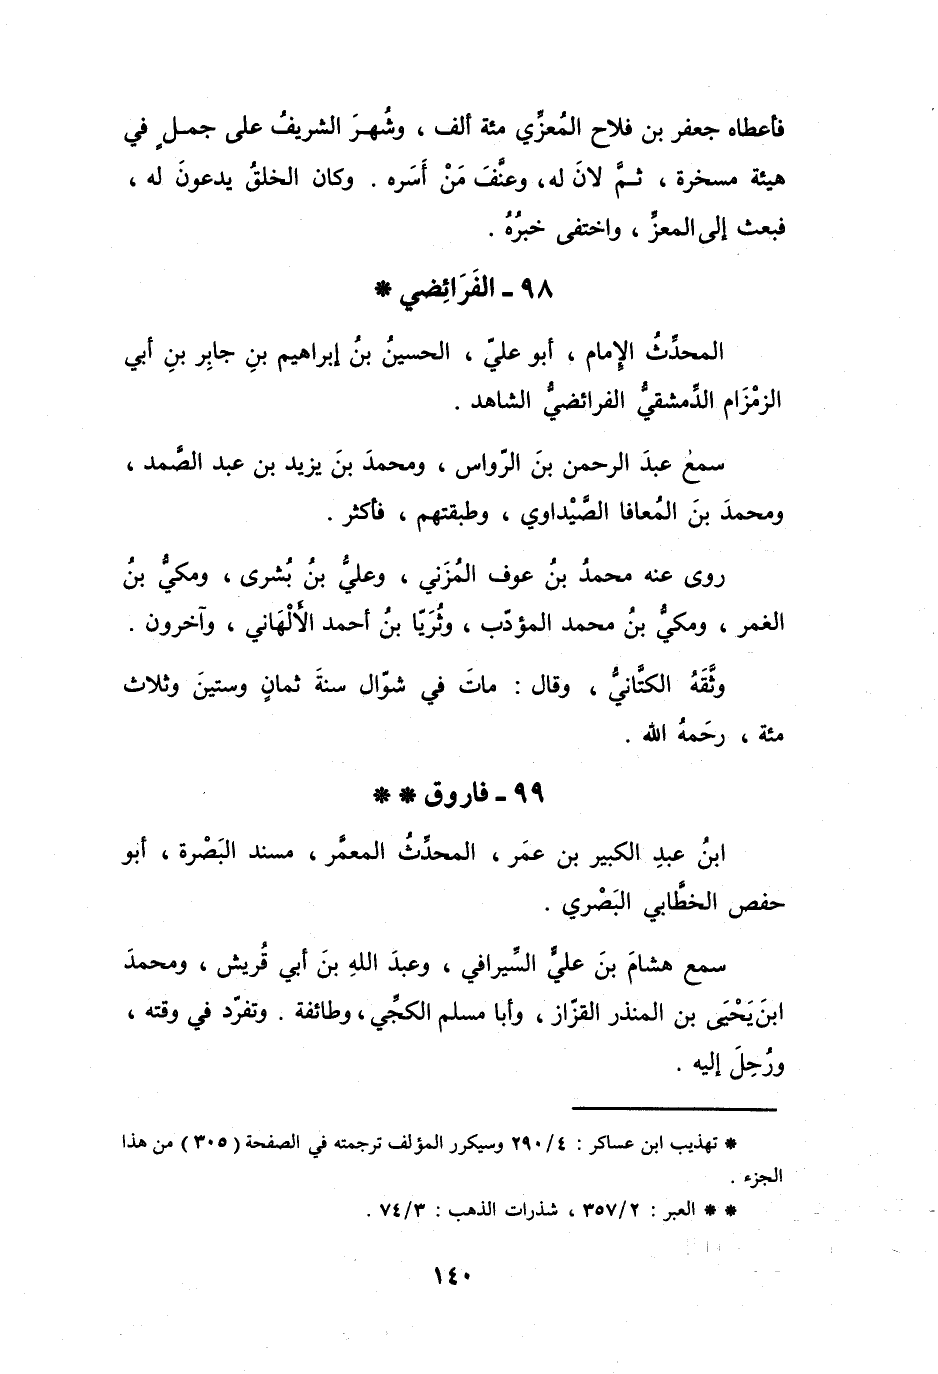 فأعطاه جعفر بن فلاح المُعزِّي مئة ألف ، وشُهـرَ الشريفُ على جمـلٍ في
هيئة مسخرة ، ثـمَّ لانَ له، وعنَّفَ مَنْ أَسَره . وكان الخلقُ يدعونَ له ،
فبعث إلى المعزِّ ، واختفى خبرُهُ .
٩٨ ـ الفَرَائِضي *
المحدِّثُ الإِمام ، أبو عليّ ، الحسينُ بنُ إبراهيم بنِ جابِر بنِ أبي
الزمْزَام الدِّمشقيُّ الفرائضيُّ الشاهد .
سمعَ عبدَ الرحمن بنَ الرّواس ، ومحمدَ بنَ يزيد بن عبد الصَّمد ،
ومحمدَ بنَ المُعافا الصَّيْداوي ، وطبقتهم ، فأكثر .
روى عنه محمدُ بنُ عوف المُزَني ، وعليُّ بنُ بُشرى ، ومكيُّ بنُ
الغمر ، ومكيُّ بنُ محمد المؤدّب ، وثُرَيّا بنُ أحمد الأَلْهَاني ، وآخرون .
وثَّقَهُ الكتَّانيُّ ، وقال : ماتَ في شوّال سنةَ ثمانٍ وستينَ وثلاث
مئة ، رحَمهُ الله .
٩٩ ـ فاروق * *
ابنُ عبدِ الكبير بن عمَر ، المحدِّثُ المعمَّر ، مسند البَصْرة ، أبو
حفص الخطَّابي البَصْري .
سمع هشامَ بنَ عليٍّ السِّيرافي ، وعبدَ اللهِ بنَ أبي قُريش ، ومحمدَ
ابنَ يَحْيَى بن المنذر القزّاز ، وأبا مسلم الكجِّي ، وطائفة . وتفرّد في وقته ،
ورُحِلَ إليه .
* تهذيب ابن عساكر : ٢٩٠/٤ وسيكرر المؤلف ترجمته في الصفحة ( ٣٠٥ ) من هذا
الجزء .
* * العبر : ٣٥٧/٢ ، شذرات الذهب : ٧٤/٣ .
١٤٠